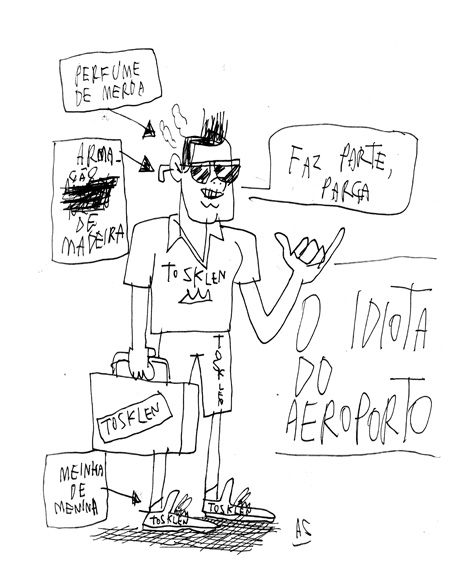 PERFUME
DE MERDA
ARMA-
ÇÃO
DE
MADEIRA
FAZ PARTE,
PARÇA
TOSKLEN
TOSKLEN
O IDIOTA
DO
AEROPORTO
TOSKLEN
MEINHA
DE
MENINA
TOSKLEN
TOSKLEN
AS